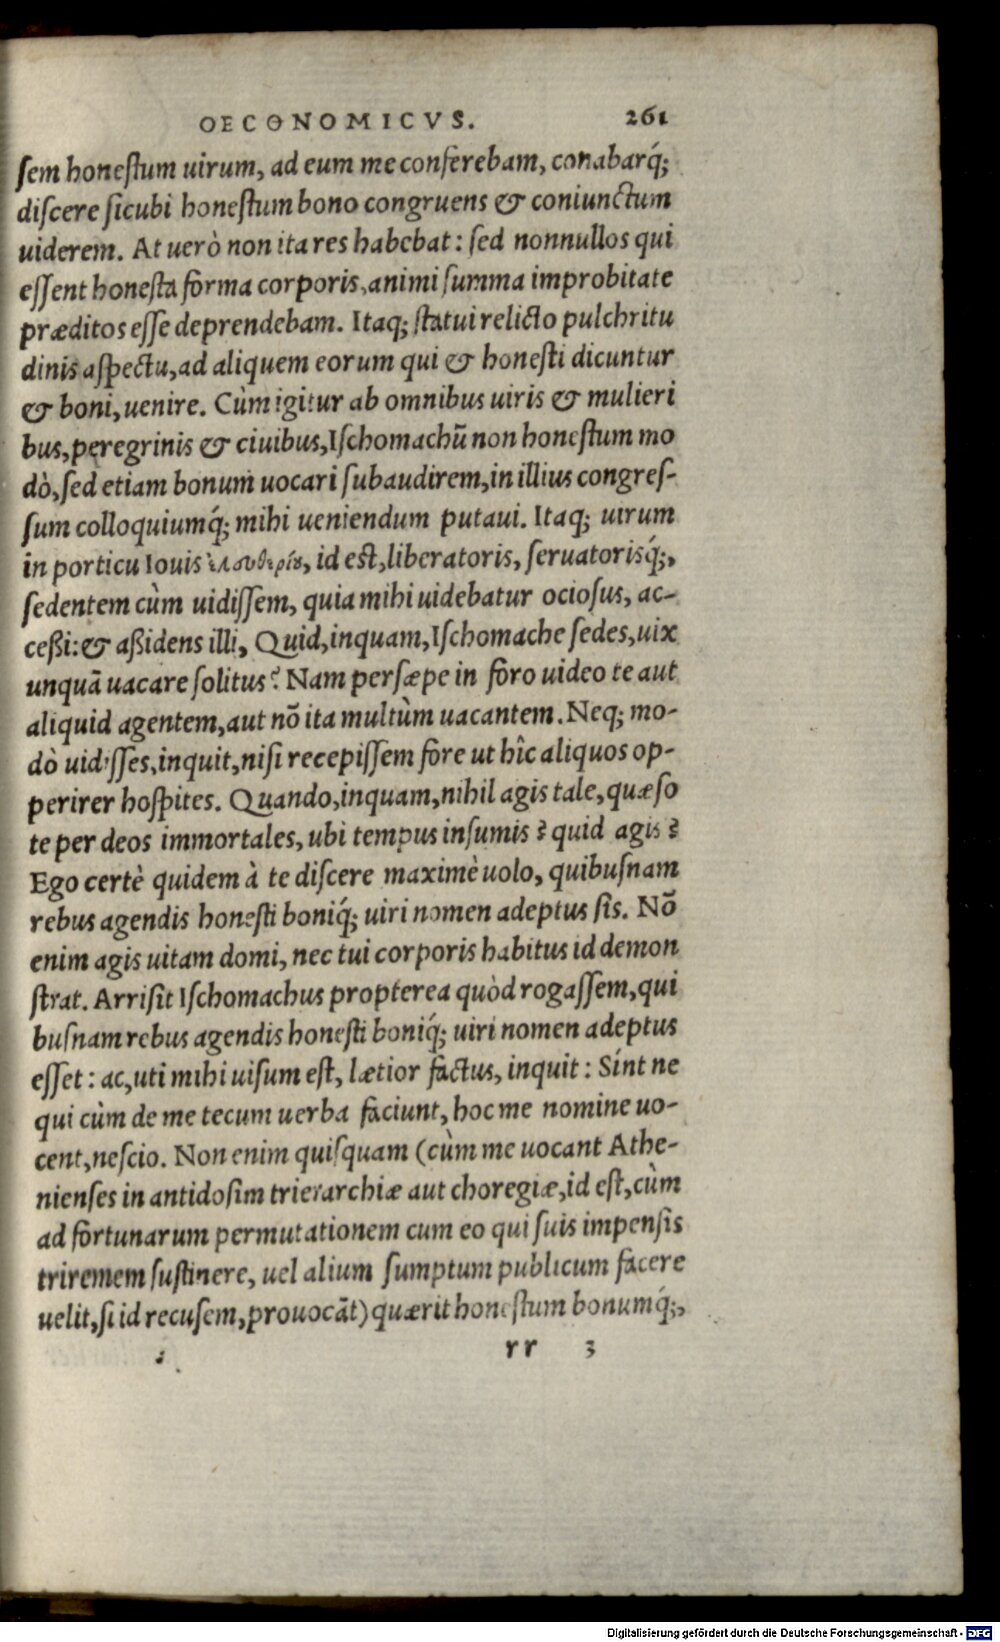 OECONOMICVS. 261
sem honestum uirum, ad eum me conferebam, conabarq́;
discere sicubi honestum bono congruens & coniunctum
uiderem. At uerò non ita res habebat: sed nonnullos qui
essent honesta forma corporis, animi summa improbitate
præditos esse deprendebam. Itaq; statui relicto pulchritu
dinis aspectu, ad aliquem eorum qui & honesti dicuntur
& boni, uenire. Cùm igitur ab omnibus uiris & mulieri
bus, peregrinis & ciuibus, Ischomachū non honestum mo
dò, sed etiam bonum uocari subaudirem, in illius congres-
sum colloquiumq́; mihi ueniendum putaui. Itaq; uirum
in porticu Iouis ἐλευθερίου, id est, liberatoris, seruatorisq́;,
sedentem cùm uidissem, quia mihi uidebatur ociosus, ac-
ceßi: & aßidens illi, Quid, inquam, Ischomache sedes, uix
unquā uacare solitus? Nam persæpe in foro uideo te aut
aliquid agentem, aut nō ita multùm uacantem. Neq; mo-
dò uidisses, inquit, nisi recepissem fore ut hîc aliquos op-
perirer hospites. Quando, inquam, nihil agis tale, quæso
te per deos immortales, ubi tempus insumis? quid agis?
Ego certè quidem à te discere maximè uolo, quibusnam
rebus agendis honesti boniq́; uiri nomen adeptus sis. Nō
enim agis uitam domi, nec tui corporis habitus id demon
strat. Arrisit Ischomachus propterea quòd rogassem, qui
busnam rebus agendis honesti boniq́; uiri nomen adeptus
esset: ac, uti mihi uisum est, lætior factus, inquit: Sint ne
qui cùm de me tecum uerba faciunt, hoc me nomine uo-
cent, nescio. Non enim quisquam (cùm me uocant Athe-
nienses in antidosim trierarchiæ aut choregiæ, id est, cùm
ad fortunarum permutationem cum eo qui suis impensis
triremem sustinere, uel alium sumptum publicum facere
uelit, si id recusem, prouocāt) quærit honestum bonumq́;,
rr 3
Digitalisierung gefördert durch die Deutsche Forschungsgemeinschaft - DFG